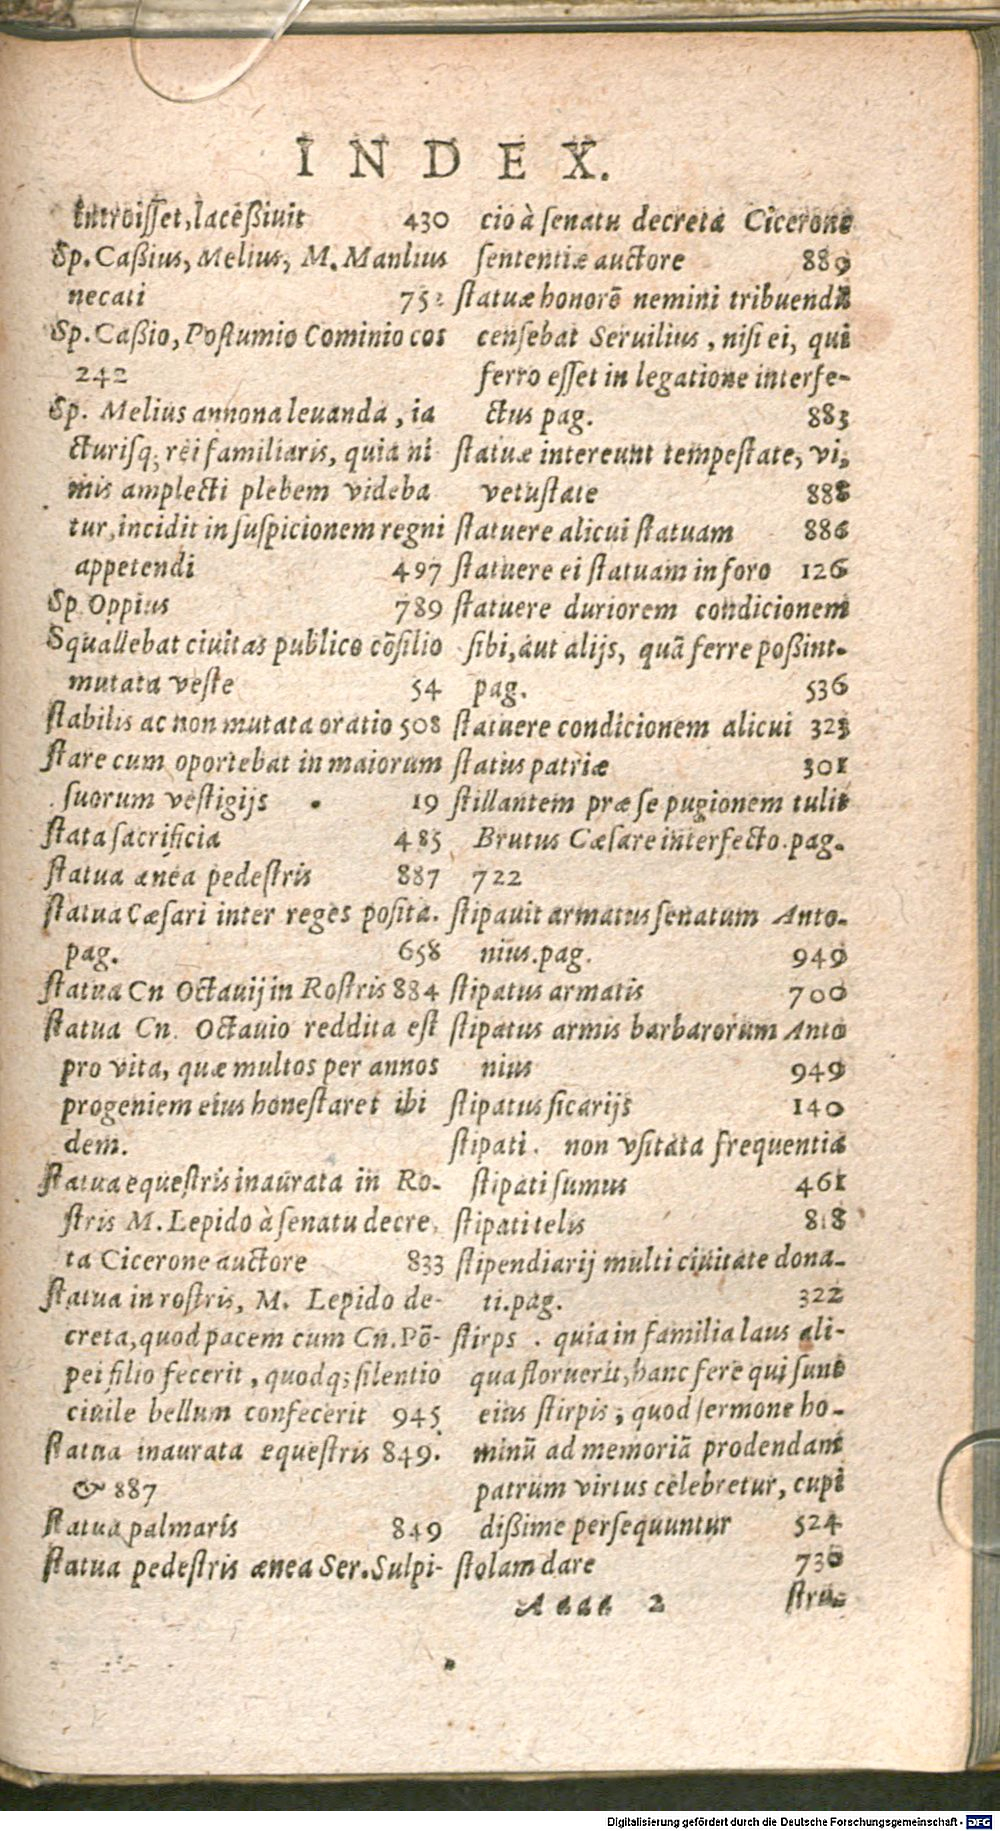 INDEX.
introiſſet, laceßiuit 430
Sp. Caßius, Melius, M. Manlius
necati 752
Sp. Caßio, Poſtumio Cominio cos
242
Sp. Melius annona leuanda, ia
cturiſq; rei familiaris, quia ni
mis amplecti plebem videba
tur, incidit in ſuſpicionem regni
appetendi 497
Sp Oppius 789
Squallebat ciuitas publico cõſilio
mutata veſte 54
ſtabilis ac non mutata oratio 508
ſtare cum oportebat in maiorum
ſuorum veſtigijs 19
ſtata ſacrificia 485
ſtatua ænea pedeſtris 887
ſtatua Cæſari inter reges poſita.
pag. 658
ſtatua Cn Octauij in Roſtris 884
ſtatua Cn. Octauio reddita eſt
pro vita, quæ multos per annos
progeniem eius honeſtaret ibi
dem.
ſtatua equeſtris inaurata in Ro-
ſtris M. Lepido à ſenatu decre
ta Cicerone auctore 833
ſtatua in roſtris, M. Lepido de-
creta, quod pacem cum Cn. Põ-
pei filio fecerit, quodq; ſilentio
ciuile bellum confecerit 945
ſtatua inaurata equeſtris 849.
& 887
ſtatua palmaris 849
ſtatua pedeſtris ænea Ser. Sulpi-
cio à ſenatu decreta Cicerone
ſententiæ auctore 889
ſtatuæ honorẽ nemini tribuendũ
cenſebat Seruilius, niſi ei, qui
ferro eſſet in legatione interfe-
ctus pag. 883
ſtatuæ intereunt tempeſtate, vi,
vetuſtate 888
ſtatuere alicui ſtatuam 886
ſtatuere ei ſtatuam in foro 126
ſtatuere duriorem condicionem
ſibi, aut alijs, quã ferre poßint.
pag. 536
ſtatuere condicionem alicui 323
ſtatus patriæ 301
ſtillantem præ ſe pugionem tulit
Brutus Cæſare interfecto. pag.
722
ſtipauit armatus ſenatum Anto-
nius. pag. 949
ſtipatus armatis 700
ſtipatus armis barbarorum Anto
nius 949
ſtipatus ſicarijs 140
ſtipati. non vſitata frequentia
ſtipati ſumus 461
ſtipati telis 818
ſtipendiarij multi ciuitate dona-
ti. pag. 322
ſtirps. quia in familia laus ali-
qua floruerit, hanc fere qui ſunt
eius ſtirpis, quod ſermone ho-
minũ ad memoriã prodendam
patrum virtus celebretur, cupi
dißime perſequuntur 524
ſtolam dare 730
Aaaa 2 ſtru-
Digitalisierung gefördert durch die Deutsche Forschungsgemeinschaft - DFG